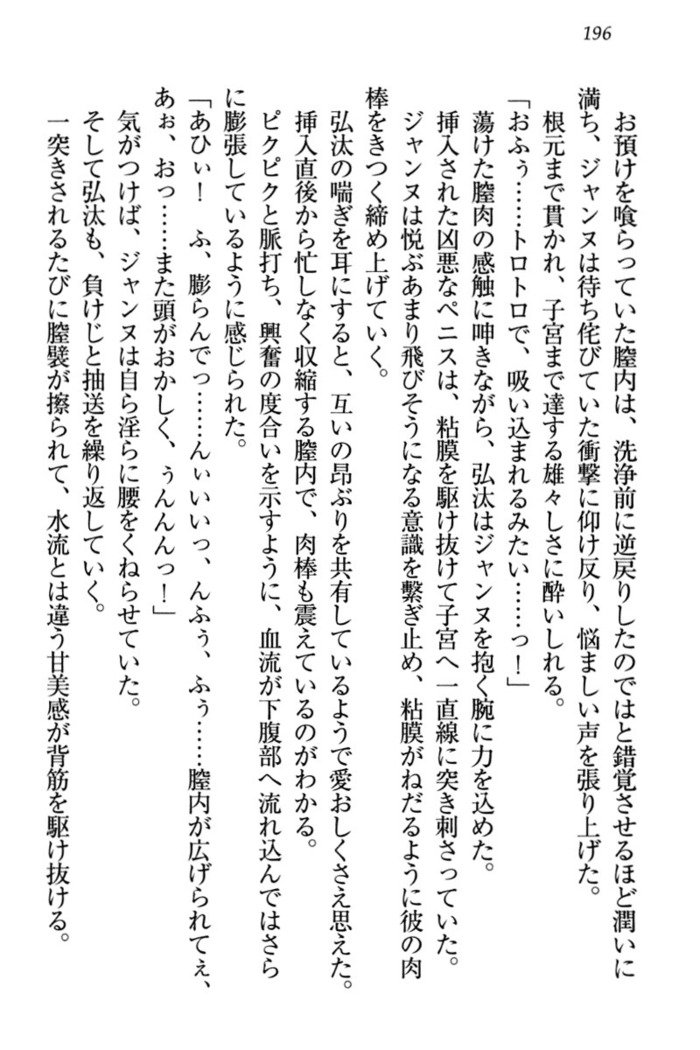 196
お預けを喰らっていた膣内は、洗浄前に逆戻りしたのではと錯覚させるほど潤いに
満ち、ジャンヌは待ち侘びていた衝撃に仰け反り、悩ましい声を張り上げた。
根元まで貫かれ、子宮まで達する雄々しさに酔いしれる。
「おふぅ……トロトロで、吸い込まれるみたい……っ！」
蕩けた膣肉の感触に呻きながら、弘汰はジャンヌを抱く腕に力を込めた。
挿入された凶悪なペニスは、粘膜を駆け抜けて子宮へ一直線に突き刺さっていた。
ジャンヌは悦ぶあまり飛びそうになる意識を繋ぎ止め、粘膜がねだるように彼の肉
棒をきつく締め上げていく。
弘汰の喘ぎを耳にすると、互いの昂ぶりを共有しているようで愛おしくさえ思えた。
挿入直後から忙しなく収縮する膣内で、肉棒も震えているのがわかる。
ピクピクと脈打ち、興奮の度合いを示すように、血流が下腹部へ流れ込んではさら
に膨張しているように感じられた。
「あひぃ！　ふ、膨らんでっ……んぃいいっ、んふぅ、ふぅ……膣内が広げられてぇ、
あぉ、おっ……また頭がおかしく、ぅんんんっ！」
気がつけば、ジャンヌは自ら淫らに腰をくねらせていた。
そして弘汰も、負けじと抽送を繰り返していく。
一突きされるたびに膣襞が擦られて、水流とは違う甘美感が背筋を駆け抜ける。